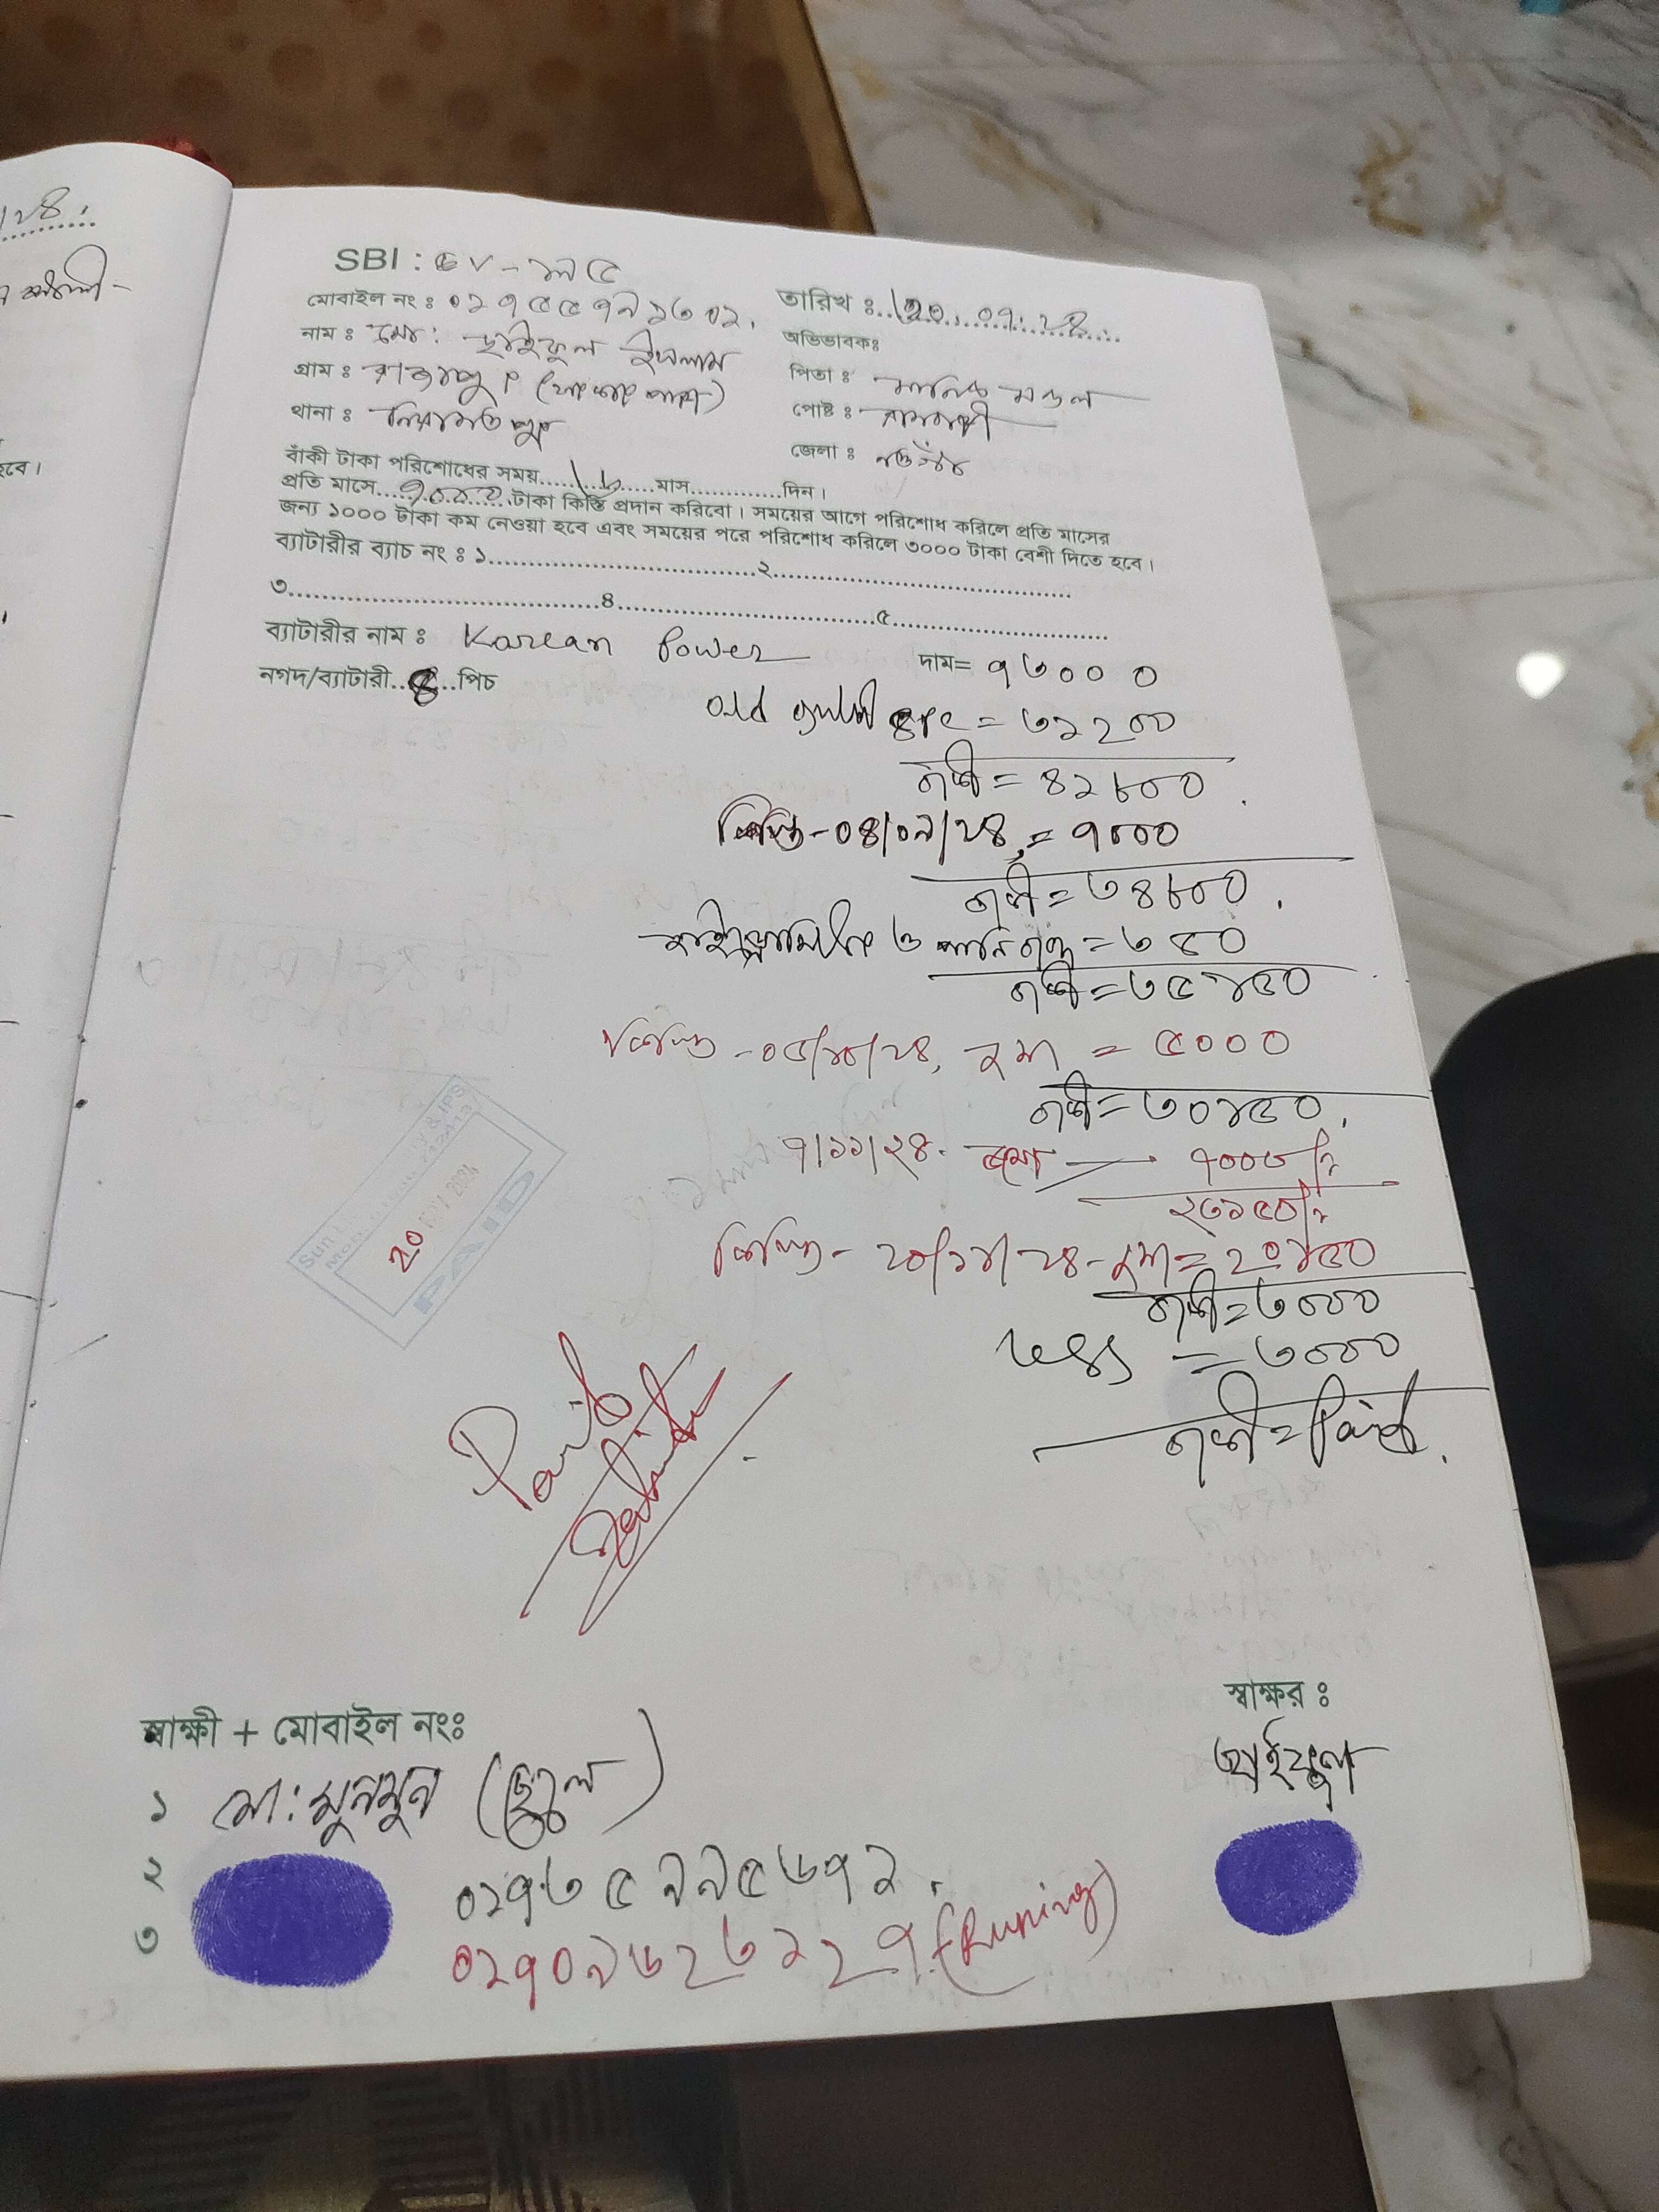 SBI : EV-১৯৫
মোবাইল নং ঃ ০১৭৫৫৭৯১৩০১.
তারিখ ঃ ২০.০৭.২৪.
নাম ঃ মো: হাইফুল ইসলাম
অভিভাবকঃ
গ্রাম ঃ রাজাপুর
পিতা ঃ মানিক মন্ডল
থানা ঃ নিয়ামতপুর
পোষ্ট ঃ
জেলা ঃ নওগাঁ
বাঁকী টাকা পরিশোধের সময়......৬......মাস.............দিন।
প্রতি মাসে...৭০০০...টাকা কিস্তি প্রদান করিবো। সময়ের আগে পরিশোধ করিলে প্রতি মাসের
জন্য ১০০০ টাকা কম নেওয়া হবে এবং সময়ের পরে পরিশোধ করিলে ৩০০০ টাকা বেশী দিতে হবে।
ব্যাটারীর ব্যাচ নং ঃ ১....................................২........................................
৩..........................................৪...................................৫.............................
ব্যাটারীর নাম ঃ Korean Power দাম= ৭৩০০০
নগদ/ব্যাটারী..৪..পিচ
old ৪pc = ৩১২০০
বাকী = ৪১৮০০.
কিস্তি-০৪/০৯/২৪, = ৭০০০
বাকী = ৩৪৮০০.
ও পানি = ৩৫০
বাকী = ৩৫১৫০
কিস্তি -০৫/১০/২৪, জমা = ৫০০০
বাকী = ৩০১৫০.
৭/১১/২৪. জমা ৭০০০/-
২৩১৫০/-
কিস্তি - ২০/১১/২৪- জমা = ২০১৫০
বাকী = ৩০০০
= ৩০০০
বাকী = Paid.
20 NOV 2024
PAID
Paid
স্বাক্ষী + মোবাইল নংঃ
স্বাক্ষর ঃ
১ মো: মুনমুন (ছেলে)
হাইফুল
২ ০১৭৩৫৯৯৫৬৭১.
৩ ০১৭০৯৬২৩১২৭ (Runing)